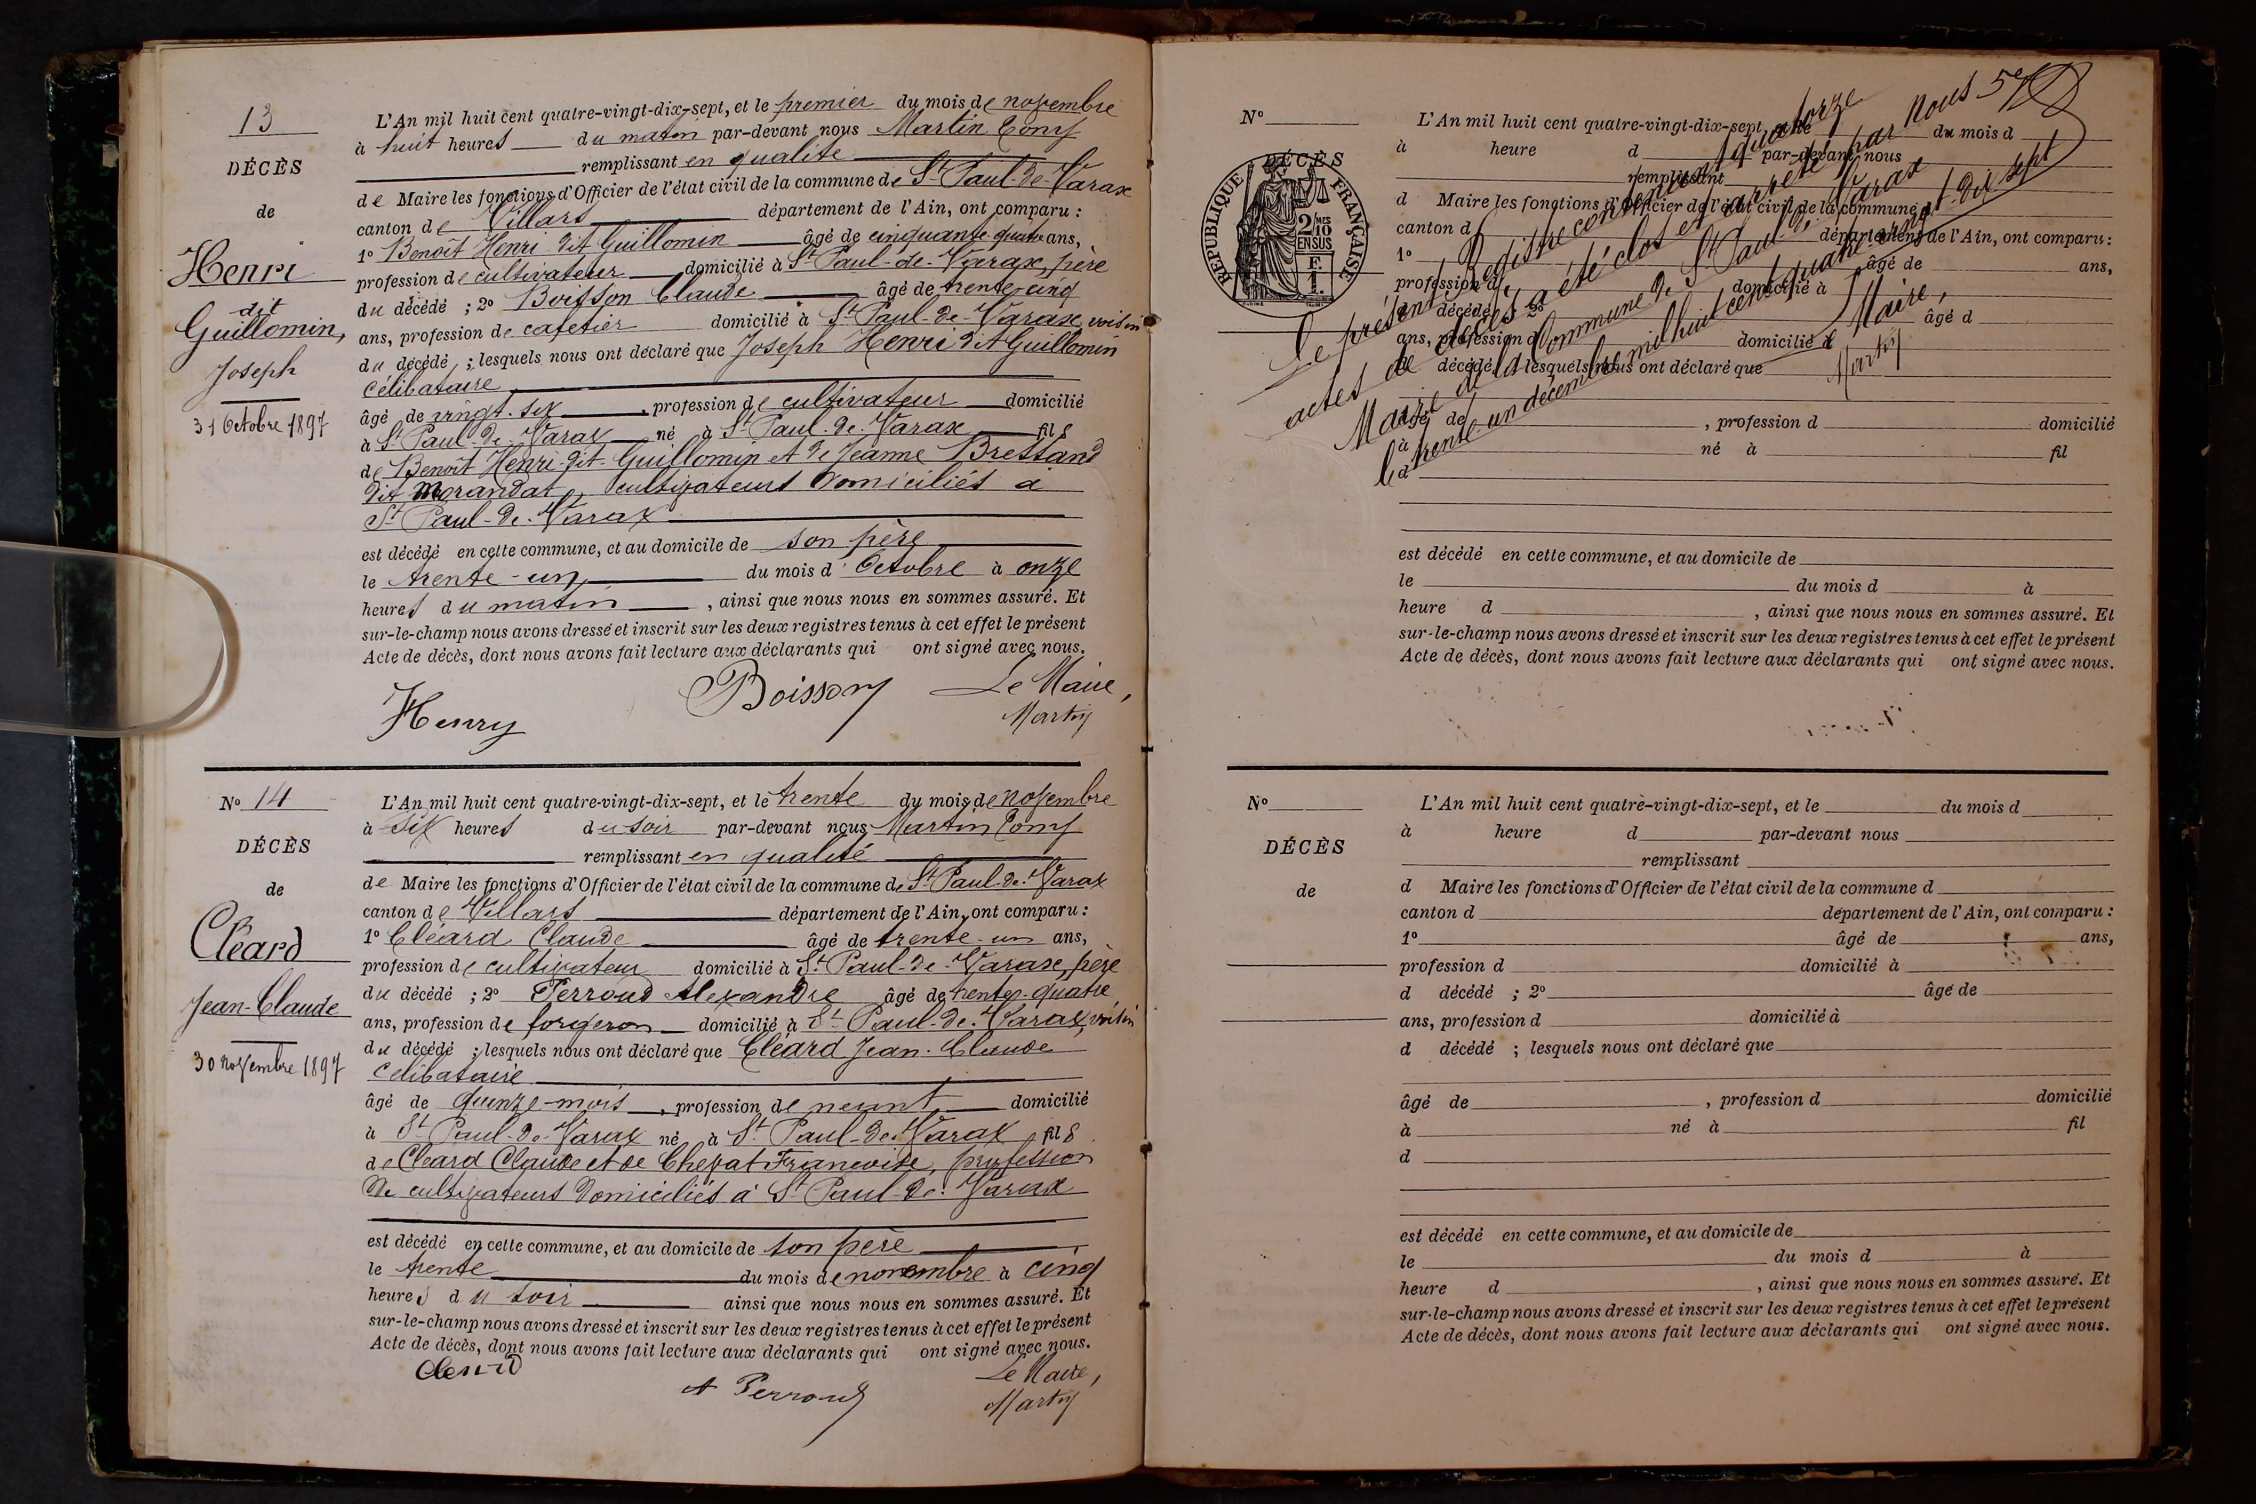 13
DÉCÈS
de
Henri
dit
Guillomin,
Joseph
31 Octobre 1897
L'An mil huit cent quatre-vingt-dix-sept, et le premier du mois de novembre
à huit heures du matin par-devant nous Martin Tony
remplissant en qualité
de Maire les fonctions d'Officier de l'état civil de la commune de St Paul-de-Varax
canton de Villars département de l'Ain, ont comparu :
1º Benoît Henri dit Guillomin âgé de cinquante quatre ans,
profession de cultivateur domicilié à St Paul-de-Varax, père
du décédé ; 2º Boisson Claude âgé de trente-cinq
ans, profession de cafetier domicilié à St Paul-de-Varax, voisin
du décédé ; lesquels nous ont déclaré que Joseph Henri dit Guillomin
célibataire
âgé de vingt-six, profession de cultivateur domicilié
à St Paul-de-Varax né à St Paul-de-Varax fils
de Benoît Henri-dit-Guillomin et de Jeanne Bressand
dit Morandat, cultivateurs domiciliés à
St Paul-de-Varax
est décédé en cette commune, et au domicile de son père
le trente-un du mois d'Octobre à onze
heures du matin, ainsi que nous nous en sommes assuré. Et
sur-le-champ nous avons dressé et inscrit sur les deux registres tenus à cet effet le présent
Acte de décès, dont nous avons fait lecture aux déclarants qui ont signé avec nous.
Henry Boisson Le Maire,
Martin
Nº 14
DÉCÈS
de
Cléard
Jean-Claude
30 novembre 1897
L'An mil huit cent quatre-vingt-dix-sept, et le trente du mois de novembre
à six heures du soir par-devant nous Martin Tony
remplissant en qualité
de Maire les fonctions d'Officier de l'état civil de la commune de St Paul-de-Varax
canton de Villars département de l'Ain, ont comparu :
1º Cléard Claude âgé de trente-un ans,
profession de cultivateur domicilié à St Paul-de-Varax, père
du décédé ; 2º Perroud Alexandre âgé de trente-quatre
ans, profession de forgeron domicilié à St Paul-de-Varax, voisin
du décédé ; lesquels nous ont déclaré que Cléard Jean-Claude
célibataire
âgé de quinze-mois, profession de néant domicilié
à St Paul-de-Varax né à St Paul-de-Varax fils
de Cléard Claude et de Chevat Françoise, profession
de cultivateurs domiciliés à St Paul-de-Varax
est décédé en cette commune, et au domicile de son père
le trente du mois de novembre à cinq
heures du soir ainsi que nous nous en sommes assuré. Et
sur-le-champ nous avons dressé et inscrit sur les deux registres tenus à cet effet le présent
Acte de décès, dont nous avons fait lecture aux déclarants qui ont signé avec nous.
A Perroud Le Maire,
Martin
Nº
DÉCÈS
RÉPUBLIQUE FRANÇAISE
2 MES 10 EN SUS
F. 1.
L'An mil huit cent quatre-vingt-dix-sept, et le du mois d
à heure d par-devant nous
remplissant
d Maire les fonctions d'Officier de l'état civil de la commune d
canton d département de l'Ain, ont comparu :
1º âgé de ans,
profession d domicilié à
d décédé ; 2º âgé d
ans, profession d domicilié à
d décédé ; lesquels nous ont déclaré que
âgé de , profession d domicilié
à né à fil
d
est décédé en cette commune, et au domicile de
le du mois d à
heure d , ainsi que nous nous en sommes assuré. Et
sur-le-champ nous avons dressé et inscrit sur les deux registres tenus à cet effet le présent
Acte de décès, dont nous avons fait lecture aux déclarants qui ont signé avec nous.
Le présent Registre contenant quatorze
actes de décès a été clos et arrêté par nous
Maire de la Commune de St Paul-de-Varax
le trente-un décembre mil huit cent quatre vingt-dix sept
Maire,
Martin
Nº
DÉCÈS
de
L'An mil huit cent quatre-vingt-dix-sept, et le du mois d
à heure d par-devant nous
remplissant
d Maire les fonctions d'Officier de l'état civil de la commune d
canton d département de l'Ain, ont comparu :
1º âgé de ans,
profession d domicilié à
d décédé ; 2º âgé de
ans, profession d domicilié à
d décédé ; lesquels nous ont déclaré que
âgé de , profession d domicilié
à né à fil
d
est décédé en cette commune, et au domicile de
le du mois d à
heure d , ainsi que nous nous en sommes assuré. Et
sur-le-champ nous avons dressé et inscrit sur les deux registres tenus à cet effet le présent
Acte de décès, dont nous avons fait lecture aux déclarants qui ont signé avec nous.